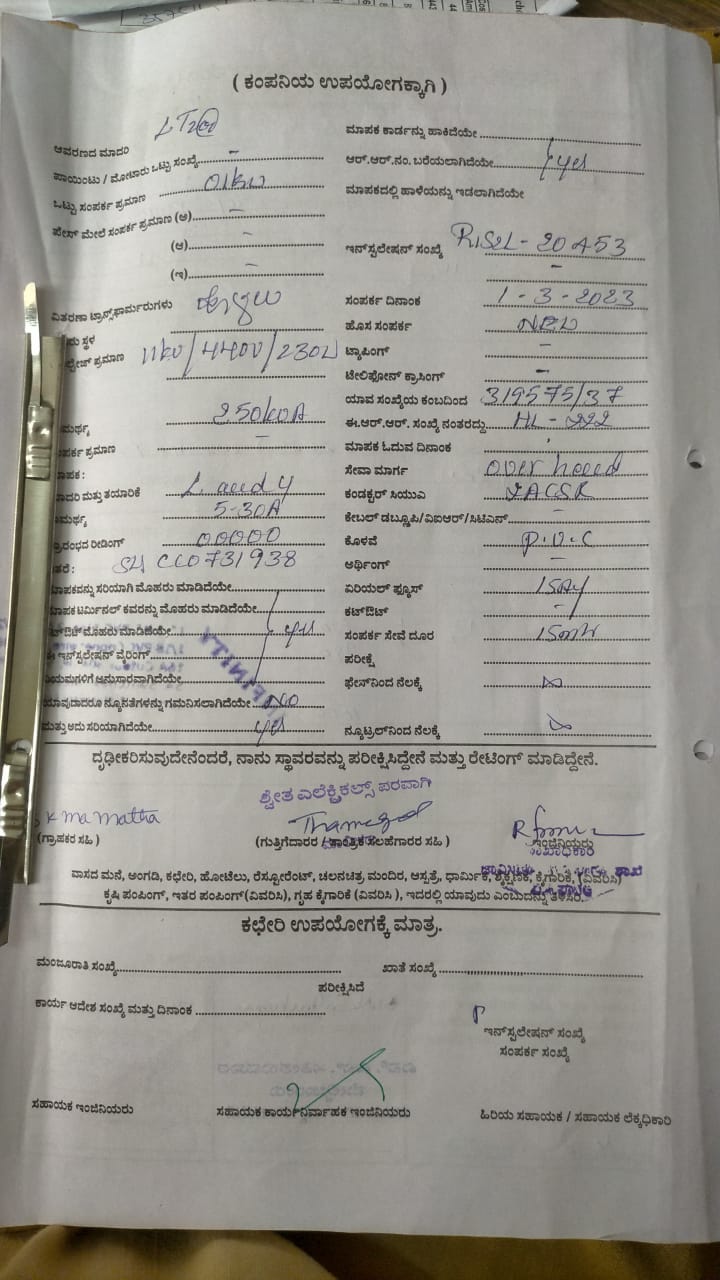 ( ಕಂಪನಿಯ ಉಪಯೋಗಕ್ಕಾಗಿ )
ಆವರಣದ ಮಾದರಿ LT2@
ಪಾಯಿಂಟು / ಮೋಟಾರು ಒಟ್ಟು ಸಂಖ್ಯೆ –
ಒಟ್ಟು ಸಂಪರ್ಕ ಪ್ರಮಾಣ 01KW
ಪೇಸ್ ಮೇಲೆ ಸಂಪರ್ಕ ಪ್ರಮಾಣ (ಅ) –
(ಆ) –
(ಇ) –
ವಿತರಣಾ ಟ್ರಾನ್ಸ್‌ಫಾರ್ಮರುಗಳು
ಸ್ಥಳ
ಪ್ರಮಾಣ 11KV/440V/230V
250KVA
ಪ್ರಮಾಣ –
ಮತ್ತು ತಯಾರಿಕೆ L and y
5-30A
ರೀಡಿಂಗ್ 00000
CC0731938
ಸರಿಯಾಗಿ ಮೊಹರು ಮಾಡಿದೆಯೇ
ಟರ್ಮಿನಲ್ ಕವರನ್ನು ಮೊಹರು ಮಾಡಿದೆಯೇ
ಮೊಹರು ಮಾಡಿದೆಯೇ yes
ಇನ್‌ಸ್ಟಲೇಷನ್ ವೈರಿಂಗ್
ಅನುಸಾರವಾಗಿದೆಯೇ
ಯಾವುದಾದರೂ ನ್ಯೂನತೆಗಳನ್ನು ಗಮನಿಸಲಾಗಿದೆಯೇ NO
ಮತ್ತು ಅದು ಸರಿಯಾಗಿದೆಯೇ yes
ಮಾಪಕ ಕಾರ್ಡನ್ನು ಹಾಕಿದೆಯೇ
ಆರ್.ಆರ್.ನಂ. ಬರೆಯಲಾಗಿದೆಯೇ yes
ಮಾಪಕದಲ್ಲಿ ಹಾಳೆಯನ್ನು ಇಡಲಾಗಿದೆಯೇ
ಇನ್‌ಸ್ಟಲೇಷನ್ ಸಂಖ್ಯೆ RISL-20453
–
ಸಂಪರ್ಕ ದಿನಾಂಕ 1-3-2023
ಹೊಸ ಸಂಪರ್ಕ NEW
ಟ್ಯಾಪಿಂಗ್ –
ಟೆಲಿಫೋನ್ ಕ್ರಾಸಿಂಗ್ –
ಯಾವ ಸಂಖ್ಯೆಯ ಕಂಬದಿಂದ 319575/37
ಈ.ಆರ್.ಆರ್. ಸಂಖ್ಯೆ ನಂತರದ್ದು HL-222
ಮಾಪಕ ಓದುವ ದಿನಾಂಕ
ಸೇವಾ ಮಾರ್ಗ over head
ಕಂಡಕ್ಟರ್ ಸಿಯುಎ ACSR
ಕೇಬಲ್ ಡಬ್ಲೂಪಿ/ವಿಐಆರ್/ಸಿಟಿಎಸ್ –
ಕೊಳವೆ P.V.C
ಅರ್ಥಿಂಗ್ –
ಏರಿಯಲ್ ಫ್ಯೂಸ್
ಕಟ್‌ಔಟ್ –
ಸಂಪರ್ಕ ಸೇವೆ ದೂರ
ಪರೀಕ್ಷೆ
ಫೇಸ್‌ನಿಂದ ನೆಲಕ್ಕೆ
ನ್ಯೂಟ್ರಲ್‌ನಿಂದ ನೆಲಕ್ಕೆ
ದೃಢೀಕರಿಸುವುದೇನೆಂದರೆ, ನಾನು ಸ್ಥಾವರವನ್ನು ಪರೀಕ್ಷಿಸಿದ್ದೇನೆ ಮತ್ತು ರೇಟಿಂಗ್ ಮಾಡಿದ್ದೇನೆ.
ಶ್ವೇತ ಎಲೆಕ್ಟ್ರಿಕಲ್ಸ್ ಪರವಾಗಿ
K mamatha
(ಗ್ರಾಹಕರ ಸಹಿ )
(ಗುತ್ತಿಗೆದಾರರ / ತಾಂತ್ರಿಕ ಸಲಹೆಗಾರರ ಸಹಿ )
ಇಂಜಿನಿಯರು
ವಾಸದ ಮನೆ, ಅಂಗಡಿ, ಕಛೇರಿ, ಹೋಟೆಲು, ರೆಸ್ಟೋರೆಂಟ್, ಚಲನಚಿತ್ರ ಮಂದಿರ, ಆಸ್ಪತ್ರೆ, ಧಾರ್ಮಿಕ, ಶೈಕ್ಷಣಿಕ, ಕೈಗಾರಿಕೆ, (ವಿವರಿಸಿ)
ಕೃಷಿ ಪಂಪಿಂಗ್, ಇತರ ಪಂಪಿಂಗ್(ವಿವರಿಸಿ), ಗೃಹ ಕೈಗಾರಿಕೆ (ವಿವರಿಸಿ ), ಇದರಲ್ಲಿ ಯಾವುದು ಎಂಬುದನ್ನು ತಿಳಿಸಿರಿ.
ಕಛೇರಿ ಉಪಯೋಗಕ್ಕೆ ಮಾತ್ರ.
ಮಂಜೂರಾತಿ ಸಂಖ್ಯೆ ಖಾತೆ ಸಂಖ್ಯೆ
ಪರೀಕ್ಷಿಸಿದೆ
ಕಾರ್ಯ ಆದೇಶ ಸಂಖ್ಯೆ ಮತ್ತು ದಿನಾಂಕ
ಇನ್‌ಸ್ಟಲೇಷನ್ ಸಂಖ್ಯೆ
ಸಂಪರ್ಕ ಸಂಖ್ಯೆ
ಸಹಾಯಕ ಇಂಜಿನಿಯರು ಸಹಾಯಕ ಕಾರ್ಯನಿರ್ವಾಹಕ ಇಂಜಿನಿಯರು ಹಿರಿಯ ಸಹಾಯಕ / ಸಹಾಯಕ ಲೆಕ್ಕಾಧಿಕಾರಿ